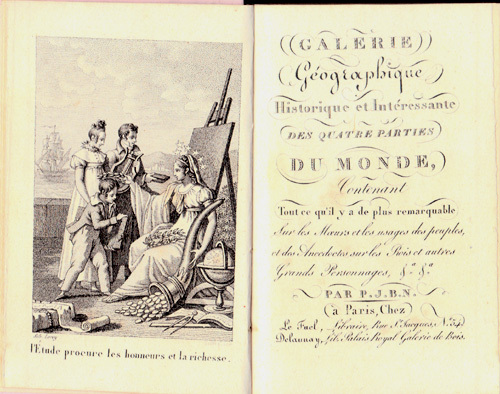 l'Etude procure les honneurs et la richesse.
GALERIE
Géographique
Historique et Intéressante
DES QUATRE PARTIES
DU MONDE,
Contenant
Tout ce qu'il y a de plus remarquable
Sur les Mœurs et les usages des peuples,
et des Anecdotes sur les Rois et autres
Grands Personnages, &.a &.a
PAR P.J.B.N.
à Paris, Chez
Le Fuel, Libraire, Rue S.t Jacques, N.o 54
Delaunay, Lib. Palais Royal Galerie de Bois.